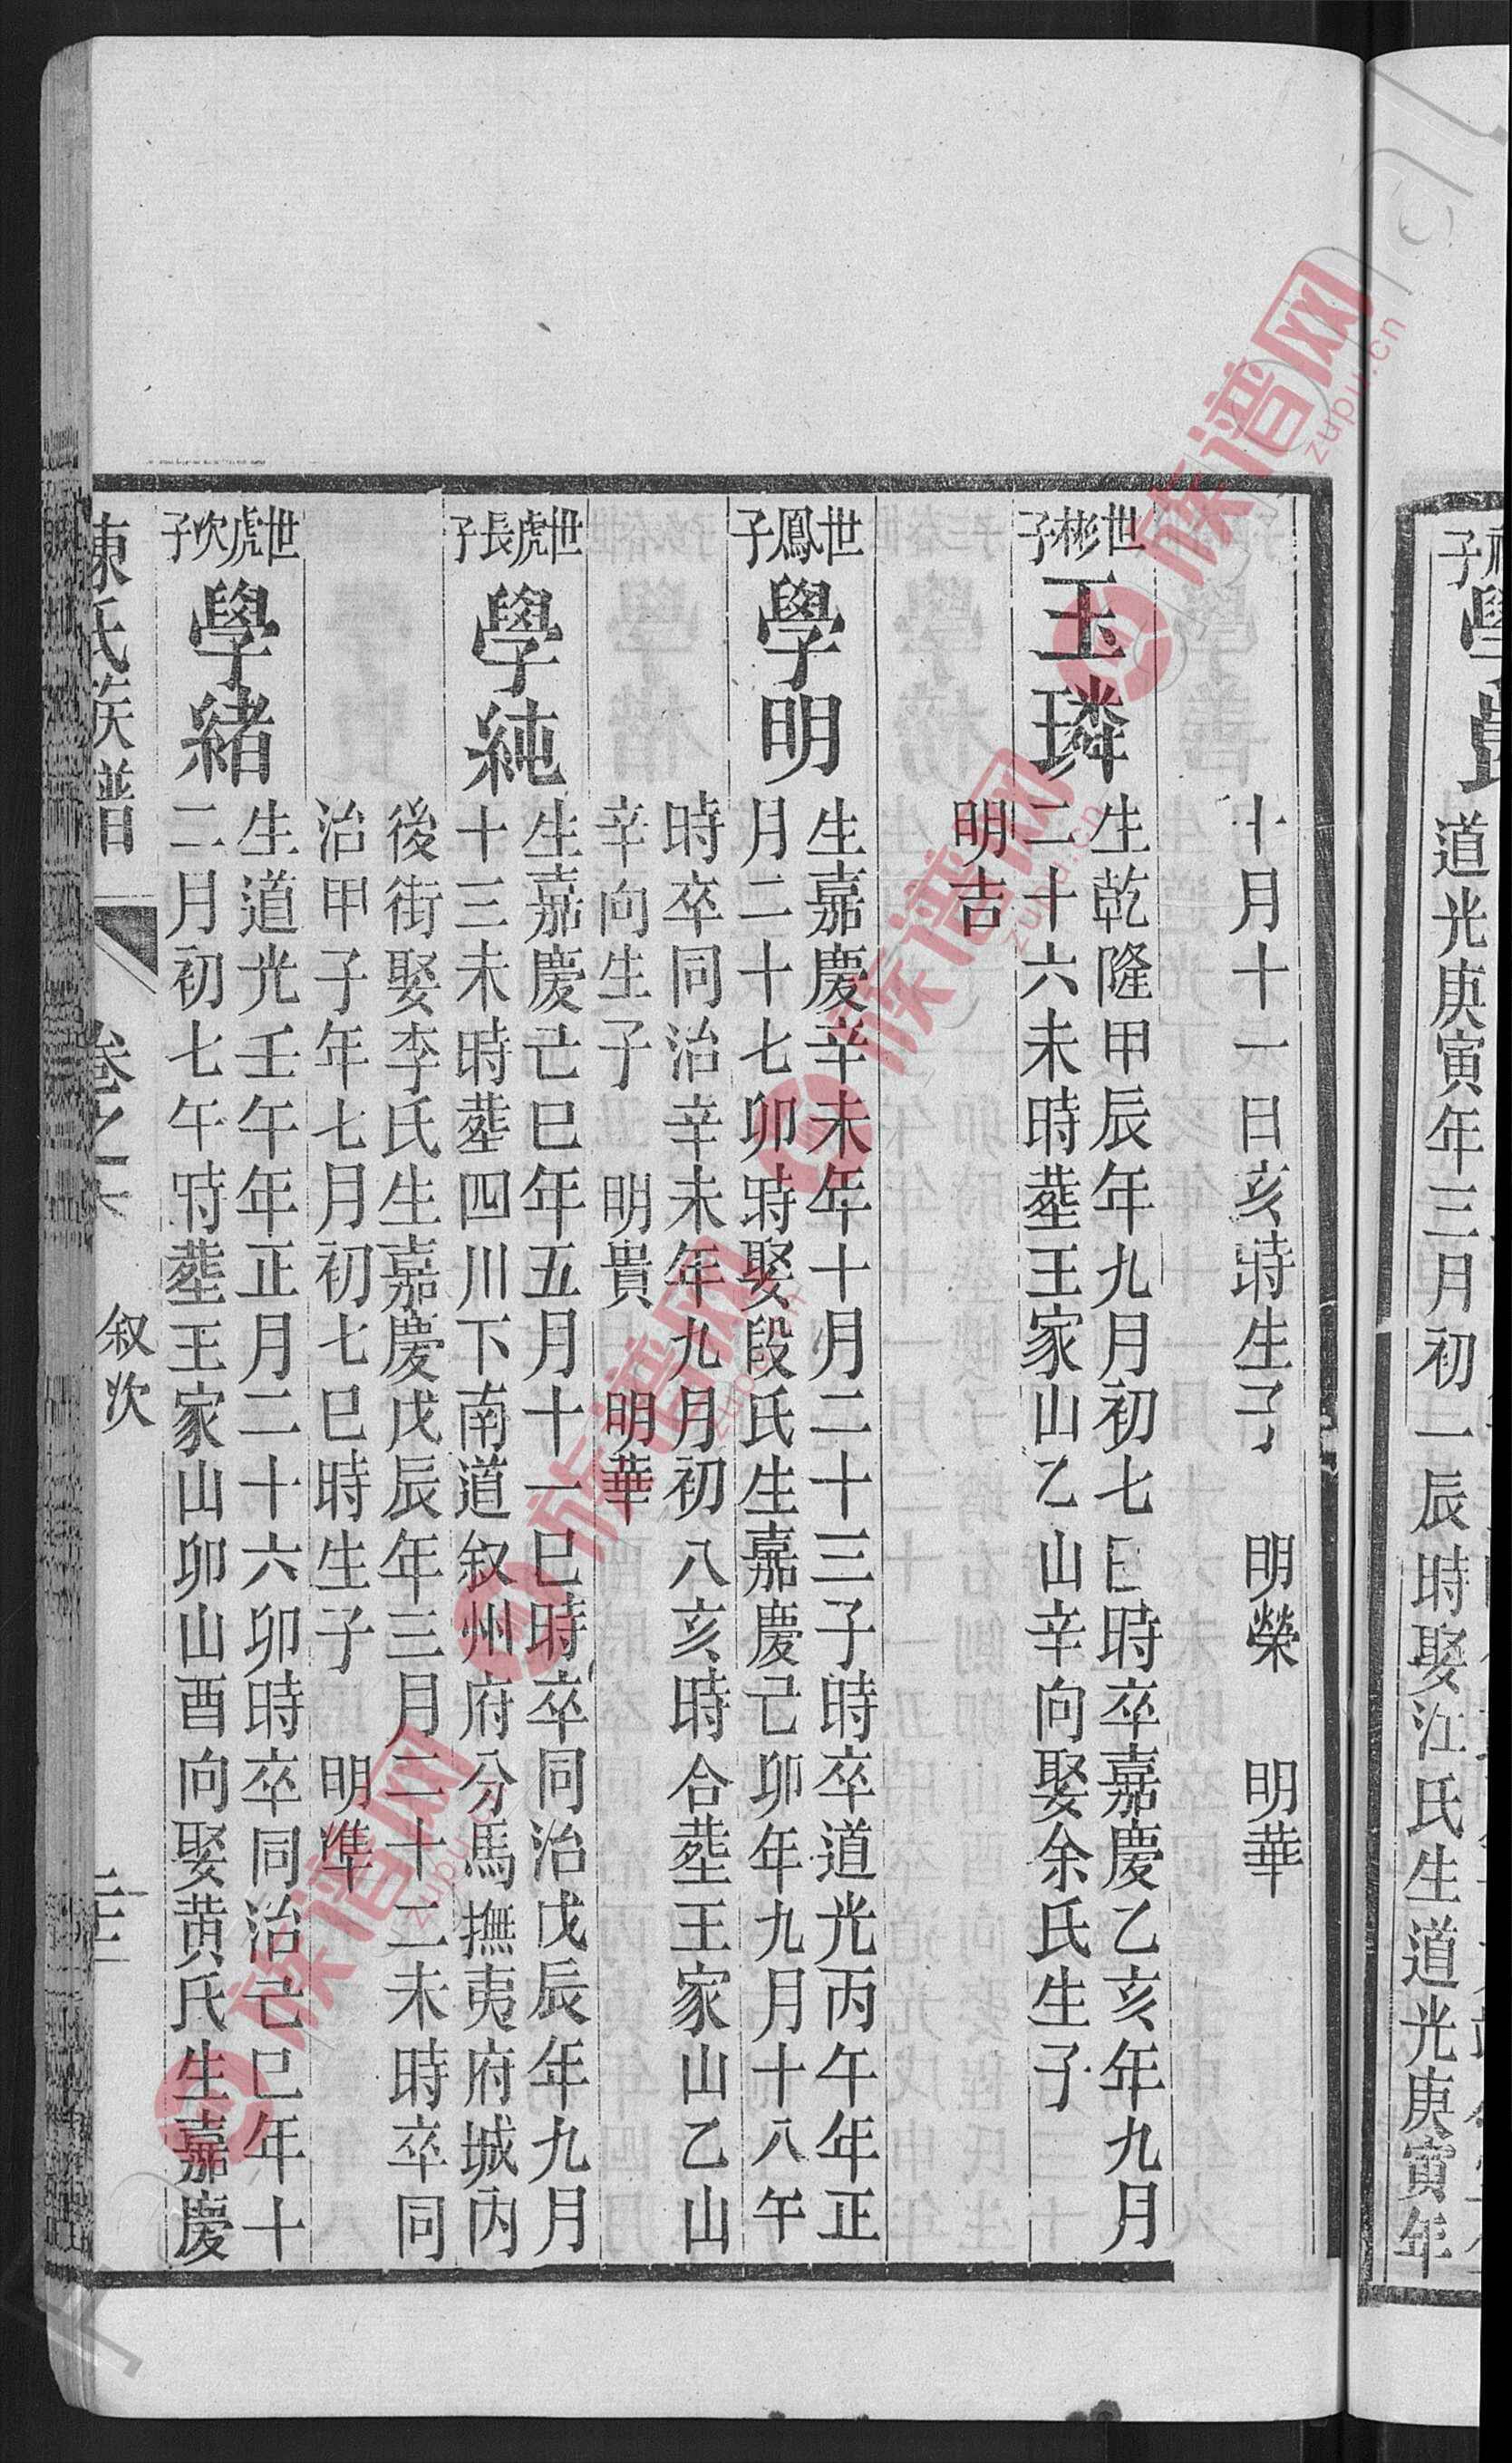 道光庚寅年三月初一辰時娶江氏生道光庚寅年
十月十一日亥時生子　明榮　明華
世彬子
玉璘
生乾隆甲辰年九月初七巳時卒嘉慶乙亥年九月
二十六未時塟王家山乙山辛向娶余氏生子
明吉
世鳳子
學明
生嘉慶辛未年十月二十三子時卒道光丙午年正
月二十七卯時娶段氏生嘉慶己卯年九月十八午
時卒同治辛未年九月初八亥時合塟王家山乙山
辛向生子　明貴　明華
世虎長子
學純
生嘉慶己巳年五月十一巳時卒同治戊辰年九月
十三未時塟四川下南道叙州府分馬撫夷府城內
後街娶李氏生嘉慶戊辰年三月二十二未時卒同
治甲子年七月初七巳時生子　明準
世虎次子
學緒
生道光壬午年正月二十六卯時卒同治己巳年十
二月初七午時塟王家山卯山酉向娶黃氏生嘉慶
氏族譜
卷之
叙次
族谱网
zupu.cn
族谱网
zupu.cn
族谱网
族谱网